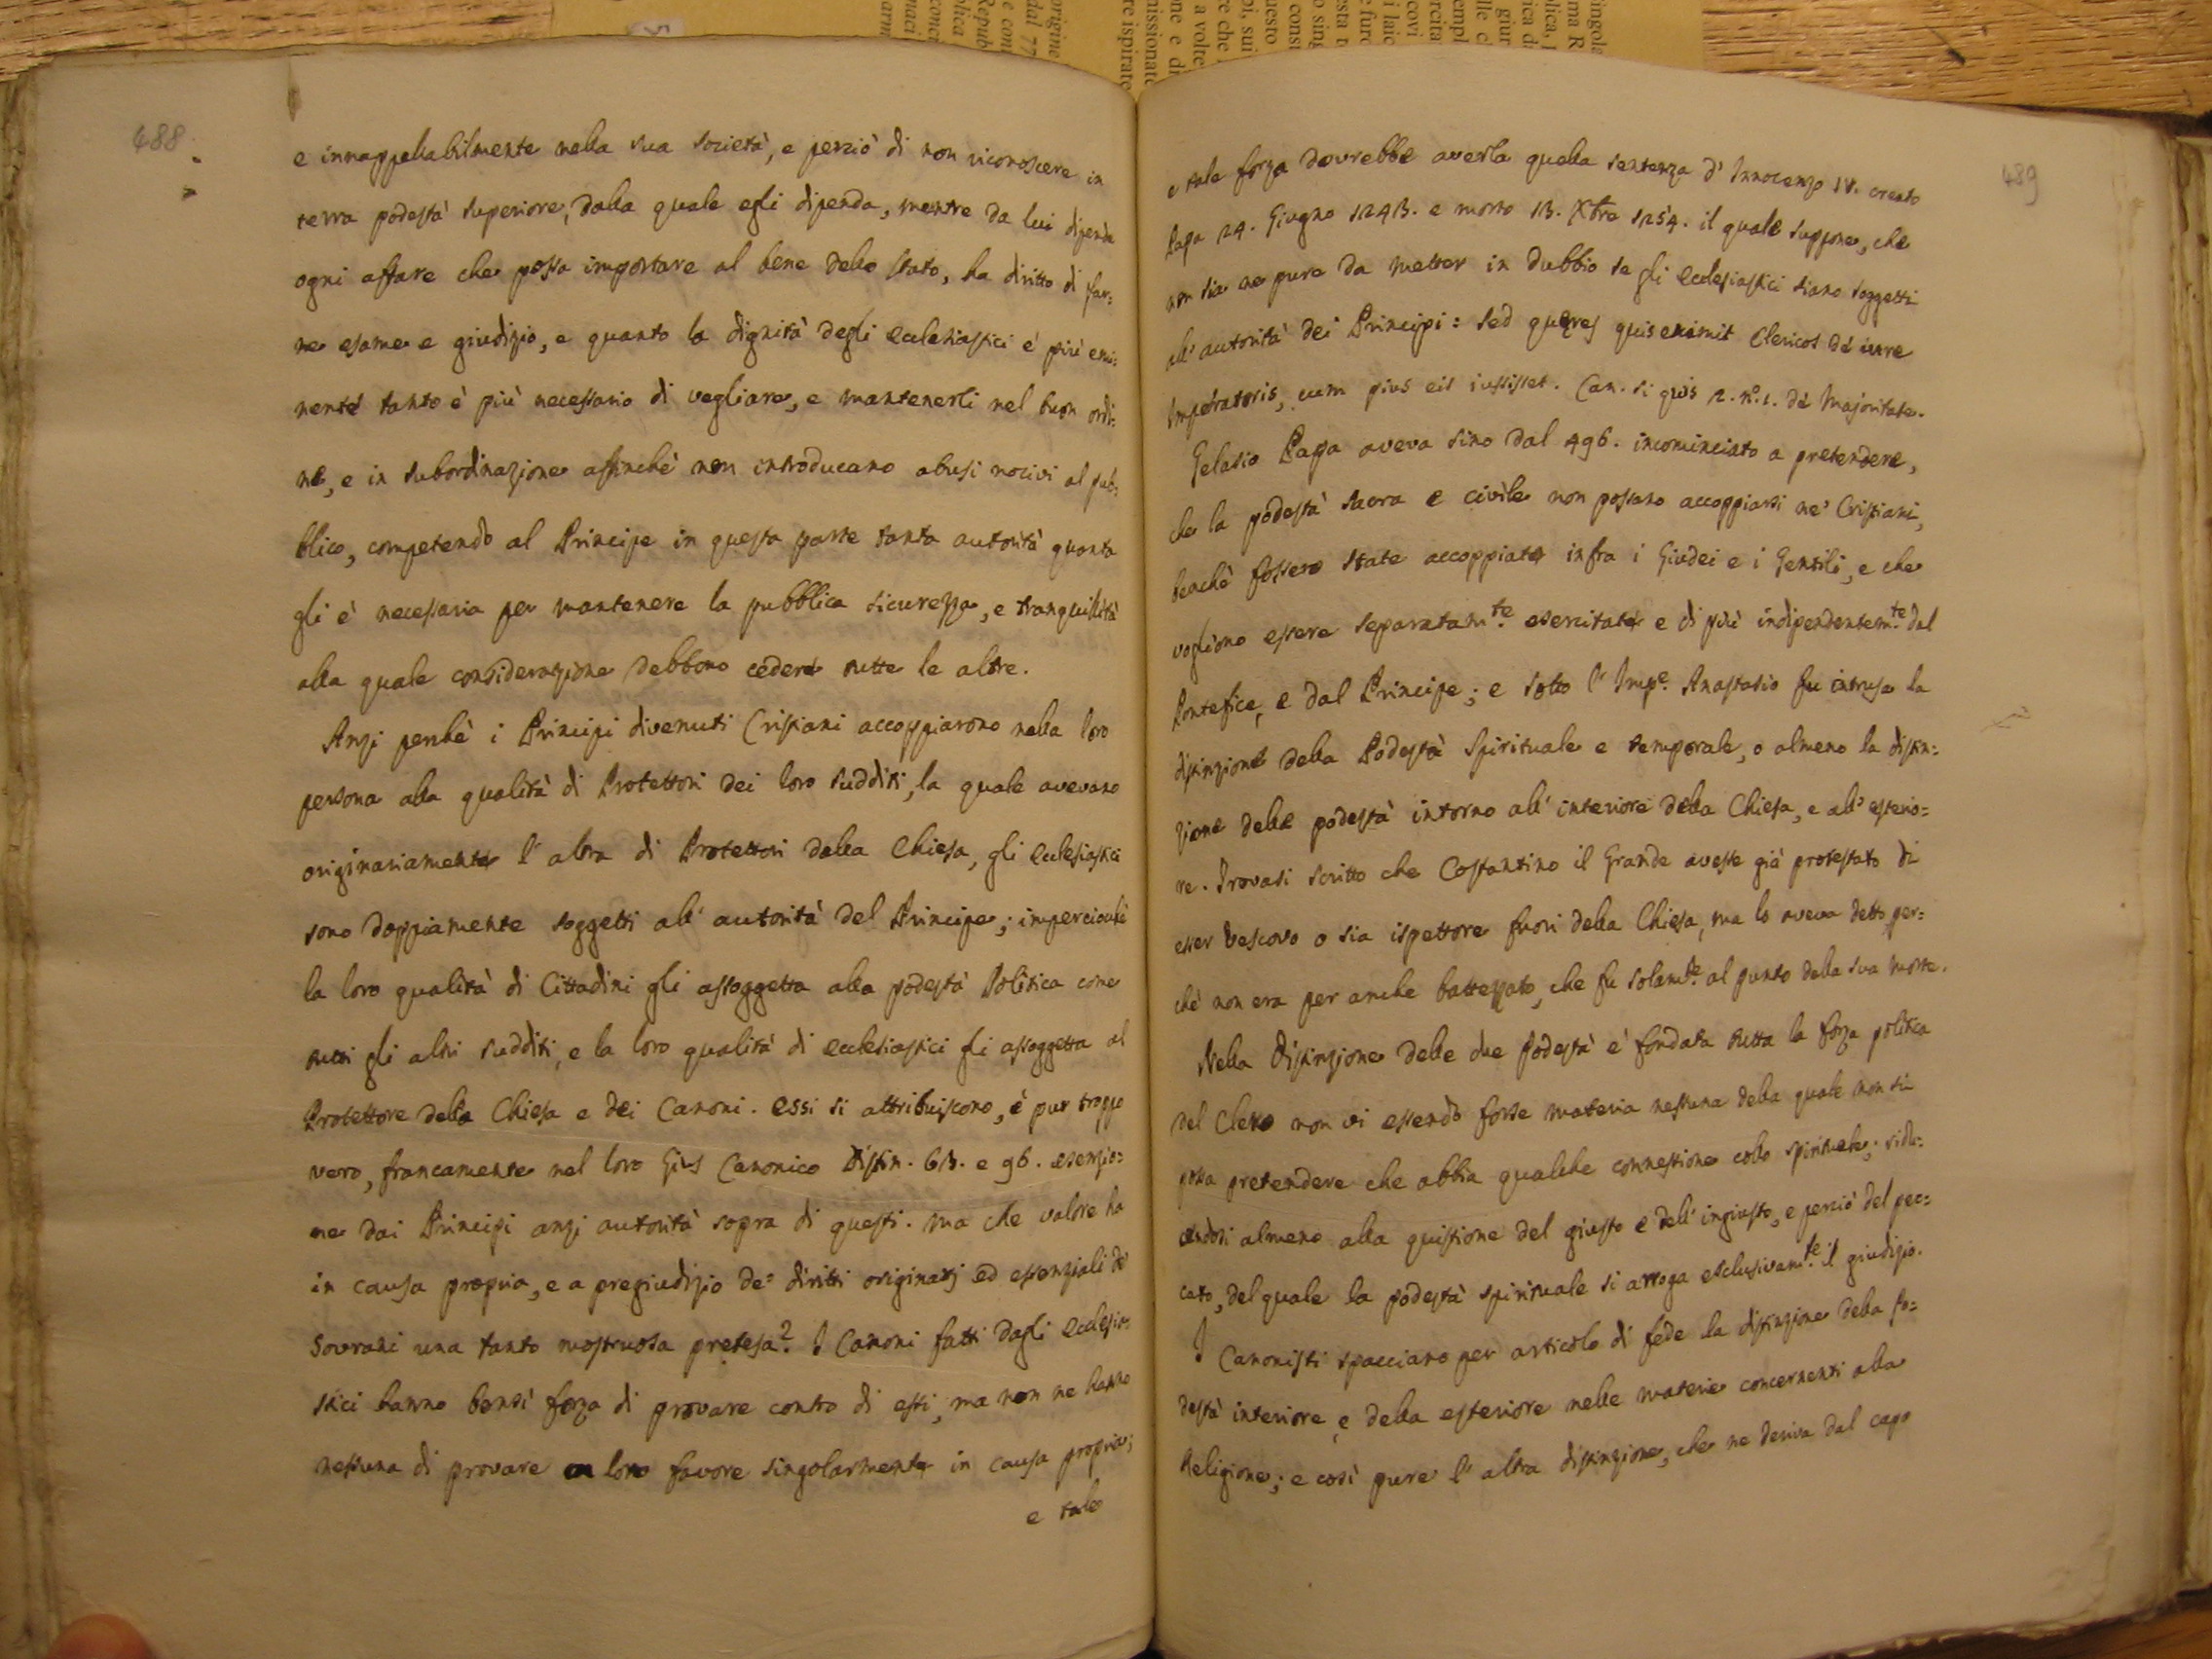 488.
e innappellabilmente nella sua società, e perciò di non riconoscere in
terra podestà superiore, dalla quale egli dipenda, mentre da lui dipende
ogni affare che possa importare al bene dello Stato, ha diritto di far=
ne esame e giudizio, e quanto la dignità degli ecclesiastici è più emi=
nente tanto è più necessario di vegliare, e mantenerli nel buon ordi=
ne, e in subordinazione affinchè non introducano abusi nocivi al pub=
blico, competendo al Principe in questa parte tanta autorità quanta
gli è necessaria per mantenere la pubblica sicurezza, e tranquillità
alla quale considerazione debbono cedere tutte le altre.
Anzi perchè i Principi divenuti Cristiani accoppiarono nella loro
persona alla qualità di Protettori dei loro sudditi, la quale avevano
originariamente l'altra di Protettori della Chiesa, gli ecclesiastici
sono doppiamente soggetti all'autorità del Principe; imperciochè
la loro qualità di Cittadini gli assoggetta alla podestà Politica come
tutti gli altri sudditi, e la loro qualità di ecclesiastici gli assoggetta al
Protettore della Chiesa e dei Canoni. essi si attribuiscono, è pur troppo
vero, francamente nel loro Gius Canonico Distin. 63. e 96. esenzio=
ne dai Principi anzi autorità sopra di questi. ma che valore ha
in causa propria, e a pregiudizio de' diritti originarj ed essenziali de'
Sovrani una tanto mostruosa pretesa? I Canoni fatti dagli ecclesia=
stici hanno bensì forza di provare contro di essi, ma non ne hanno
nessuna di provare a loro favore singolarmente in causa propria;
e tale
489
e tale forza dovrebbe averla quella sentenza d'Innocenzo IV. creato
Papa 24. Giugno 1243. e morto 13. Xbre 1254. il quale suppone, che
non sia ne pure da metter in dubbio se gli ecclesiastici siano soggetti
all'autorità dei Principi: sed quæres quis exemit Clericos de iure
Imperatoris, cum pius eis iussisset. Can. si quis 2. n.º 1. de Majoritate.
Gelasio Papa aveva sino dal 496. incominciato a pretendere,
che la podestà sacra e civile non possano accoppiarsi ne' Cristiani,
benchè fossero state accoppiate infra i Giudei e i Gentili, e che
vogliono essere separatam.te esercitate e di più indipendentem.te dal
Pontefice, e dal Principe; e sotto l'Imp.e Anastasio fu intrusa la
distinzione della Podestà Spirituale e temporale, o almeno la distin=
zione delle podestà intorno all'interiore della Chiesa, e all'esterio=
re. Trovasi scritto che Costantino il Grande avesse già protestato di
esser Vescovo o sia ispettore fuori della Chiesa, ma lo aveva detto per=
chè non era per anche battezzato, che fu solam.te al punto della sua morte.
Nella distinzione delle due podestà è fondata tutta la forza politica
del Clero non vi essendo forse materia nessuna della quale non si
possa pretendere che abbia qualche connessione collo spirituale; ridu=
cendosi almeno alla quistione del giusto e dell'ingiusto, e perciò del pec=
cato, del quale la podestà spirituale si arroga esclusivam.te il giudizio.
I Canonisti spacciano per articolo di fede la distinzione della po=
destà interiore, e della esteriore nelle materie concernenti alla
Religione; e così pure l'altra distinzione, che ne deriva dal capo